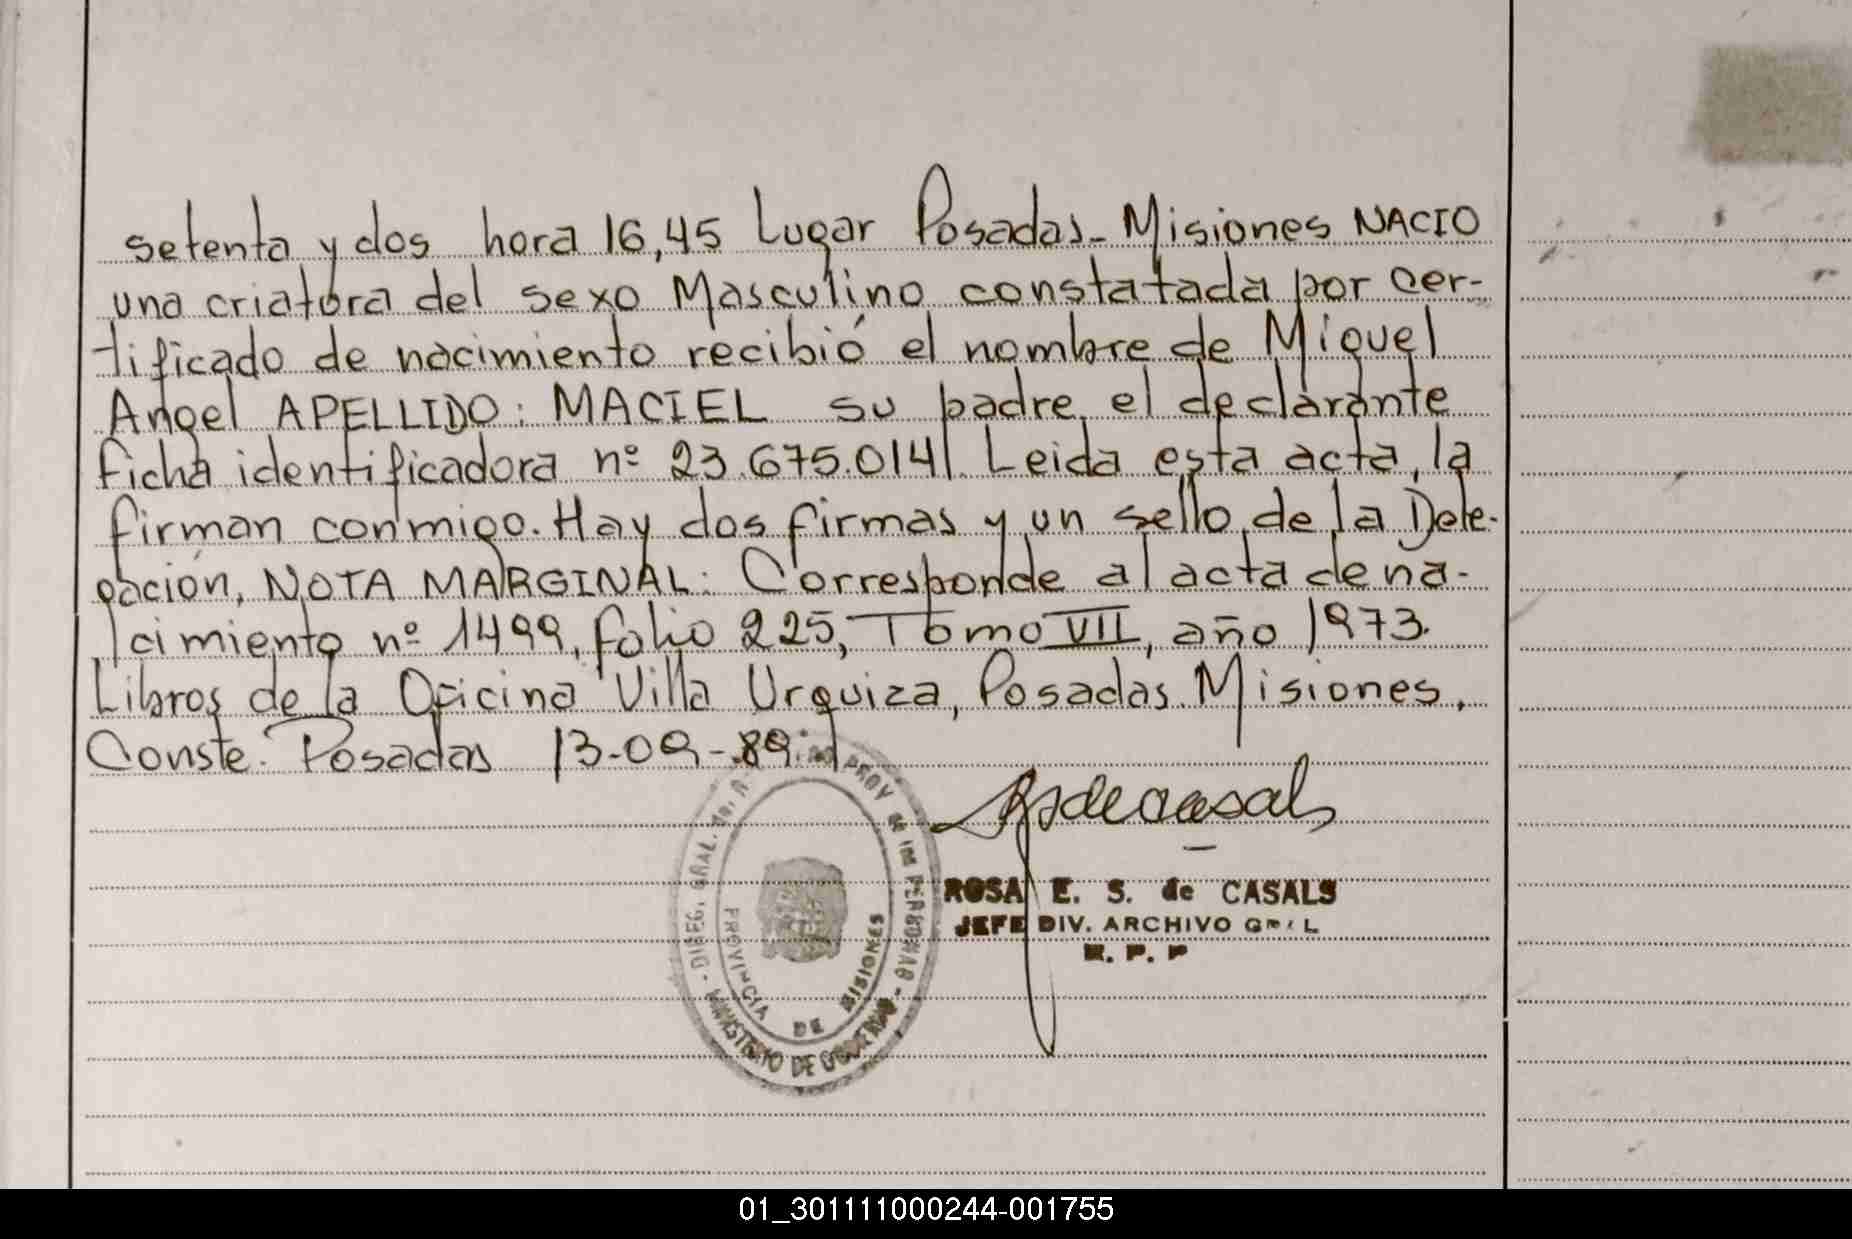 setenta y dos hora 16,45 Lugar Posadas - Misiones NACIO
una criatura del sexo Masculino constatada por cer-
tificado de nacimiento recibió el nombre de Miguel
Angel APELLIDO: MACIEL su padre el declarante
ficha identificadora nº 23.675.014. Leida esta acta, la
firman conmigo. Hay dos firmas y un sello de la Dele-
gación, NOTA MARGINAL: Corresponde al acta de na-
cimiento nº 1499, folio 225, Tomo VII, año 1973.
Libros de la Oficina Villa Urquiza, Posadas. Misiones.
Conste. Posadas 13-09-89.
ROSA E. S. de CASALS
JEFE DIV. ARCHIVO GRAL
R. P. P
DIREC. GRAL.
PROV de las PERSONAS
PROVINCIA DE MISIONES
MINISTERIO DE GOBIERNO
01_301111000244-001755